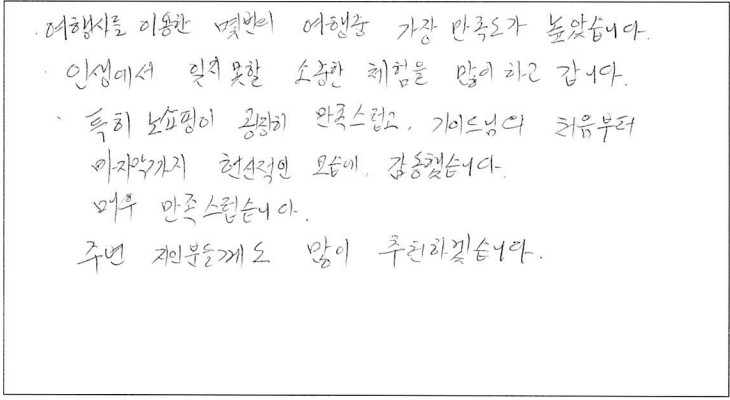 · 여행사를 이용한 몇번의 여행중 가장 만족도가 높았습니다.
· 인생에서 잊지못할 소중한 체험을 많이 하고 갑니다.
· 특히 노쇼핑이 굉장히 만족스럽고, 가이드님의 처음부터
마지막까지 헌신적인 모습에, 감동했습니다.
매우 만족스럽습니다.
주변 지인분들께도 많이 추천하겠습니다.